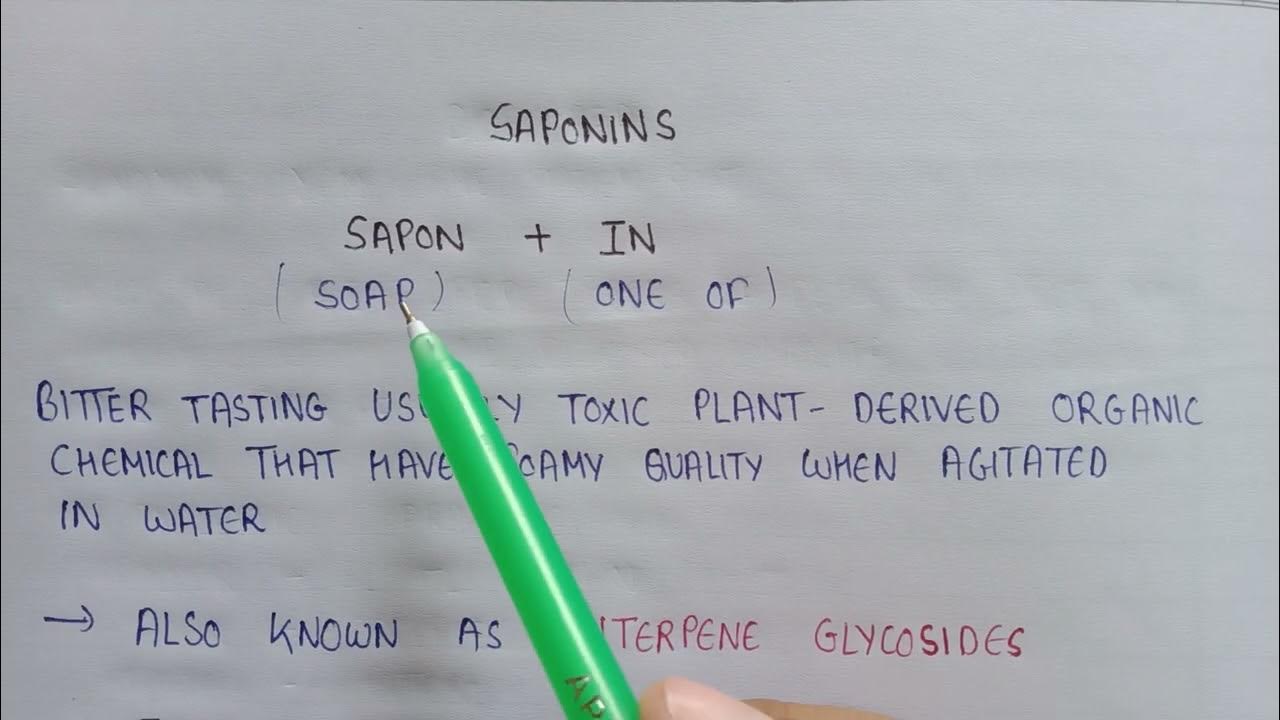 SAPONINS
SAPON + IN
(SOAP) (ONE OF)
BITTER TASTING TOXIC PLANT- DERIVED ORGANIC
CHEMICAL THAT HAVE QUALITY WHEN AGITATED
IN WATER
→ ALSO KNOWN AS GLYCOSIDES
AP